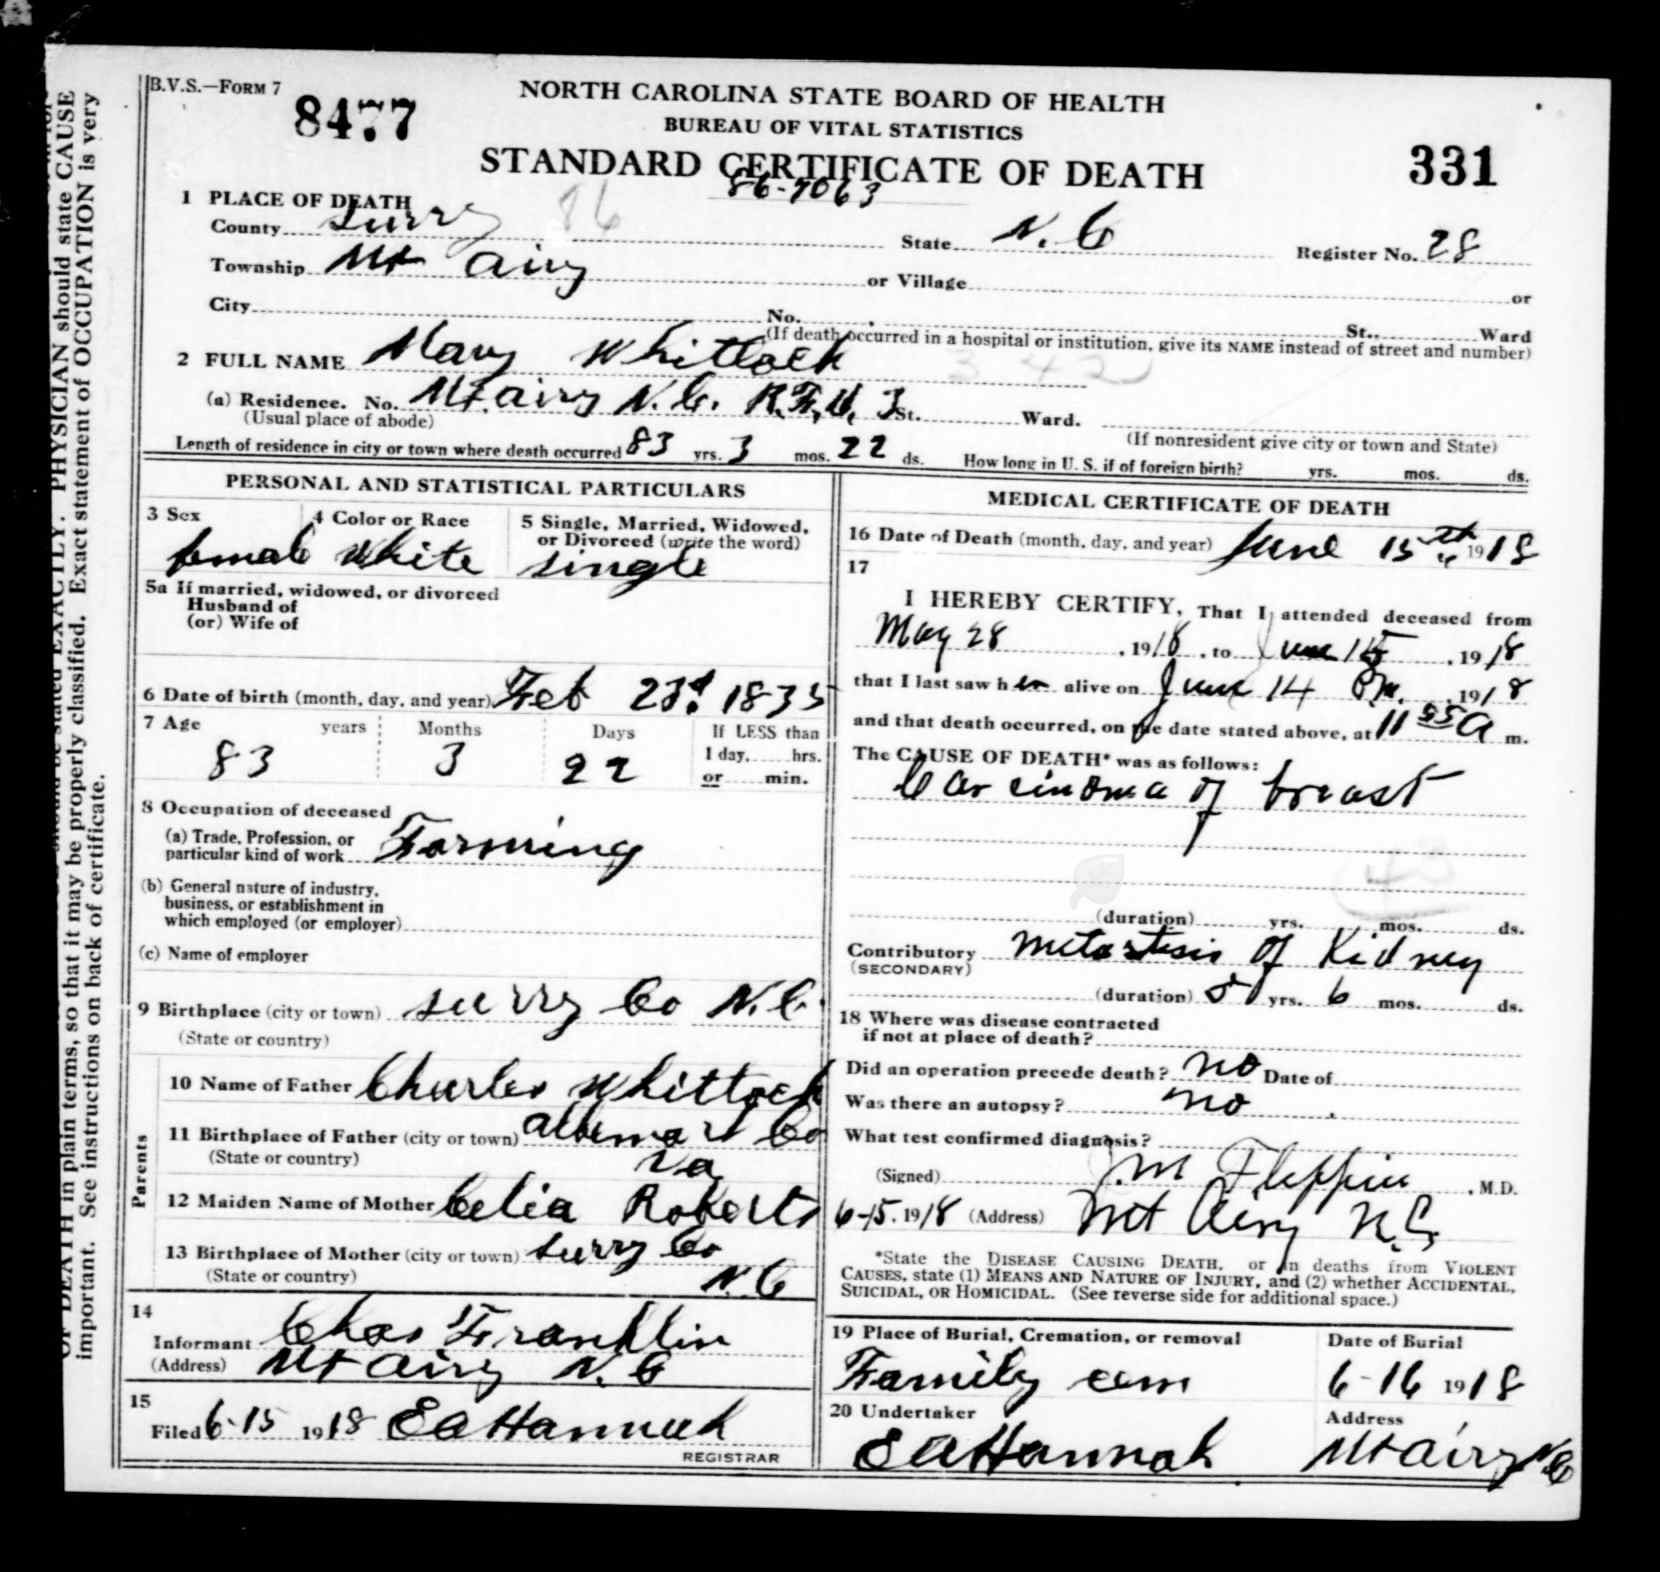 B.V.S.—FORM 7
8477
NORTH CAROLINA STATE BOARD OF HEALTH
BUREAU OF VITAL STATISTICS
STANDARD CERTIFICATE OF DEATH
331
86-7063
1 PLACE OF DEATH
County Surry 86 State N. C Register No. 28
Township Mt Airy or Village or
City No. St., Ward
(If death occurred in a hospital or institution, give its NAME instead of street and number)
2 FULL NAME Mary Whitlock 342
(a) Residence. No. Mt. Airy N. C. R. F. D. 3 St. Ward.
(Usual place of abode) (If nonresident give city or town and State)
Length of residence in city or town where death occurred 83 yrs. 3 mos. 22 ds. How long in U. S. if of foreign birth? yrs. mos. ds.
PERSONAL AND STATISTICAL PARTICULARS
3 Sex 4 Color or Race 5 Single, Married, Widowed,
or Divorced (write the word)
female White single
5a If married, widowed, or divorced
Husband of
(or) Wife of
6 Date of birth (month, day, and year) Feb 23d 1835
7 Age years Months Days If LESS than
1 day, hrs.
83 3 22 or min.
8 Occupation of deceased
(a) Trade, Profession, or
particular kind of work Farming
(b) General nature of industry,
business, or establishment in
which employed (or employer)
(c) Name of employer
9 Birthplace (city or town) Surry Co N.C.
(State or country)
Parents
10 Name of Father Charles Whittock
11 Birthplace of Father (city or town) Albemarl Co
(State or country) Va
12 Maiden Name of Mother Celia Roberts
13 Birthplace of Mother (city or town) Surry Co
(State or country) N. C
14
Informant Chas Franklin
(Address) Mt Airy N. C
15
Filed 6-15 1918 E a Hannah
REGISTRAR
MEDICAL CERTIFICATE OF DEATH
16 Date of Death (month, day, and year) June 15th 1918
17
I HEREBY CERTIFY, That I attended deceased from
May 28, 1918, to June 15, 1918
that I last saw her alive on June 14 PM., 1918
and that death occurred, on the date stated above, at 11 55 A m.
The CAUSE OF DEATH* was as follows:
Carcinoma of breast
43
(duration) yrs. mos. ds.
Contributory Metastasis of Kidney
(SECONDARY)
(duration) 5 yrs. 6 mos. ds.
18 Where was disease contracted
if not at place of death?
Did an operation precede death? no Date of
Was there an autopsy? no
What test confirmed diagnosis?
(Signed) J. M Flippin, M.D.
6-15. 1918 (Address) Mt Airy N.C.
*State the DISEASE CAUSING DEATH, or in deaths from VIOLENT
CAUSES, state (1) MEANS AND NATURE OF INJURY, and (2) whether ACCIDENTAL,
SUICIDAL, OR HOMICIDAL. (See reverse side for additional space.)
19 Place of Burial, Cremation, or removal Date of Burial
Family cem 6-16 1918
20 Undertaker Address
E A Hannah Mt Airy N.C
PHYSICIAN should state CAUSE
OF DEATH in plain terms, so that it may be properly classified. Exact statement of OCCUPATION is very
important. See instructions on back of certificate.